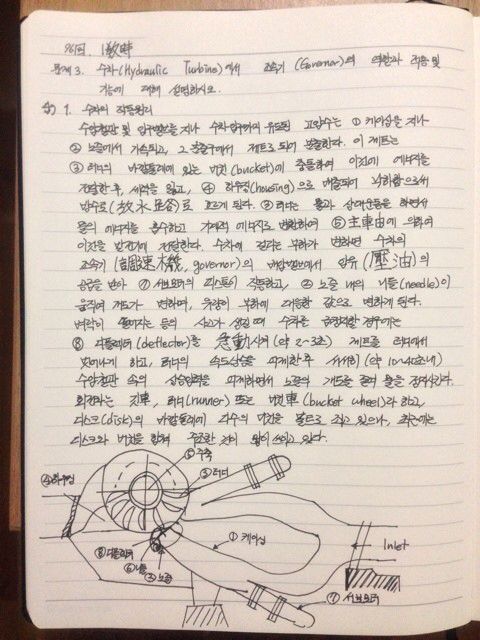 96회. 1교시
문제 3. 수차(Hydraulic Turbine)에서 조속기(Governor)의 역할과 작동 및
기능에 대해 설명하시오.
답) 1. 수차의 작동원리
수압철관 및 입구밸브를 지나 수차입구까지 유도된 고압수는 ① 케이싱을 지나
② 노즐에서 가속되고, 분출구에서 제트로 되어 분출한다. 이 제트는
③ 러너의 바깥둘레에 있는 버킷(bucket)에 충돌하여 이것에 에너지를
전달한 후, 세력을 잃고, ④ 하우징(housing)으로 배출되어 낙하함으로써
방수로(放水路)로 흐르게 된다. ③ 러너는 물과 상호작용을 하면서
물의 에너지를 흡수하고 기계적 에너지로 변환하여 ⑤ 主車由에 의하여
이것을 발전기에 전달한다. 수차에 걸리는 부하가 변하면 수차의
조속기(調速機, governor)의 배압밸브에서 압유(壓油)의
공급을 받아 ⑦ 서보모터의 피스톤이 작동하고, ② 노즐 내의 니들(needle)이
움직여 개도가 변하며, 유량이 부하에 대응한 값으로 변하게 된다.
벼락이 떨어지는 등의 사고가 생길 때 수차를 급정지할 경우에는
⑧ 디플렉터(deflector)를 急動시켜(약 2~3초) 제트를 러너에서
벗어나게 하고, 러너의 속도상승을 억제한 후 서서히(약 10~40초내)
수압철관 속의 상승압력을 억제하면서 노즐의 개도를 줄여 물을 정지시킨다.
회전차는 러너(runner) 또는 버킷車(bucket wheel)라 하고,
디스크(disk)의 바깥둘레에 다수의 버킷을 볼트로 죄고 있으나, 최근에는
디스크와 버킷을 함께 주조한 것이 많이 쓰이고 있다.
⑤ 주축
③ 러너
④ 하우징
① 케이싱
Inlet
⑧ 디플렉터
⑥ 니들
② 노즐
⑦ 서보모터